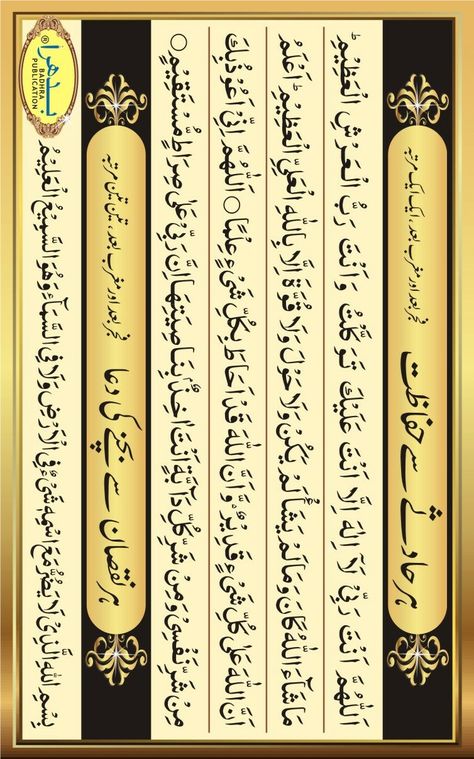 ہر حادثے سے حفاظت فجر بعد اور مغرب بعد، ایک ایک مرتبہ
اَللّٰهُمَّ اَنْتَ رَبِّیْ لَاۤ اِلٰهَ اِلَّاۤ اَنْتَ عَلَیْكَ تَوَكَّلْتُ وَاَنْتَ رَبُّ الْعَرْشِ الْعَظِیْمِؕ
مَاشَآءَ اللهُ كَانَ وَمَالَمْ یَشَأْلَمْ یَكُنْ وَلَاحَوْلَ وَلَا قُوَّةَ اِلَّا بِاللهِ الْعَلِیِّ الْعَظِیْمِؕ اَعْلَمُ
اَنَّ اللهَ عَلٰی كُلِّ شَیْءٍ قَدِیْرٌ وَّاَنَّ اللهَ قَدْ اَحَاطَ بِكُلِّ شَیْءٍ عِلْمًا○ اَللّٰهُمَّ اِنِّیْ اَعُوْذُبِكَ
مِنْ شَرِّ نَفْسِیْ وَمِنْ شَرِّ كُلِّ دَآبَّةٍ اَنْتَ اٰخِذٌۢ بِنَاصِیَتِهَا اِنَّ رَبِّیْ عَلٰی صِرَاطٍ مُّسْتَقِیْمٍ○
ہر نقصان سے بچنے کی دعا فجر بعد اور مغرب بعد، تین تین مرتبہ
بِسْمِ اللهِ الَّذِیْ لَا یَضُرُّ مَعَ اسْمِهٖ شَیْءٌ فِی الْاَرْضِ وَلَا فِی السَّمَآءِ وَهُوَ السَّمِیْعُ الْعَلِیْمُ
بدھرا ®
BADHRA
PUBLICATION